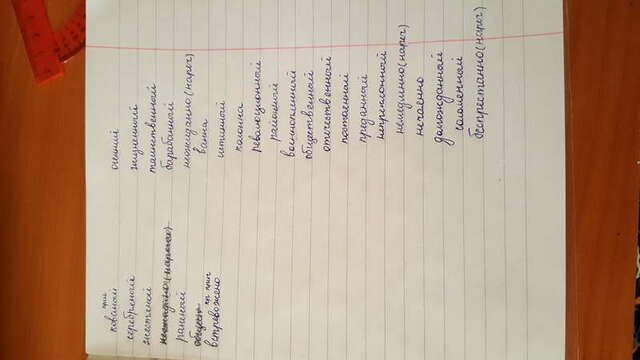 прил
кованый
серебряный
жестяной
нежидано (наречие)
раненый
общест
кр. прич
встревожено
осенний
жизненный
таинственный
барабанный
неожиданно (нареч)
ванна
истинный
колонна
революционный
районный
военнопленный
общественный
отечественный
постоянный
преданный
непреклонный
немедленно (нареч)
нечаенно
долгожданный
соломенный
беспрестанно (нареч)